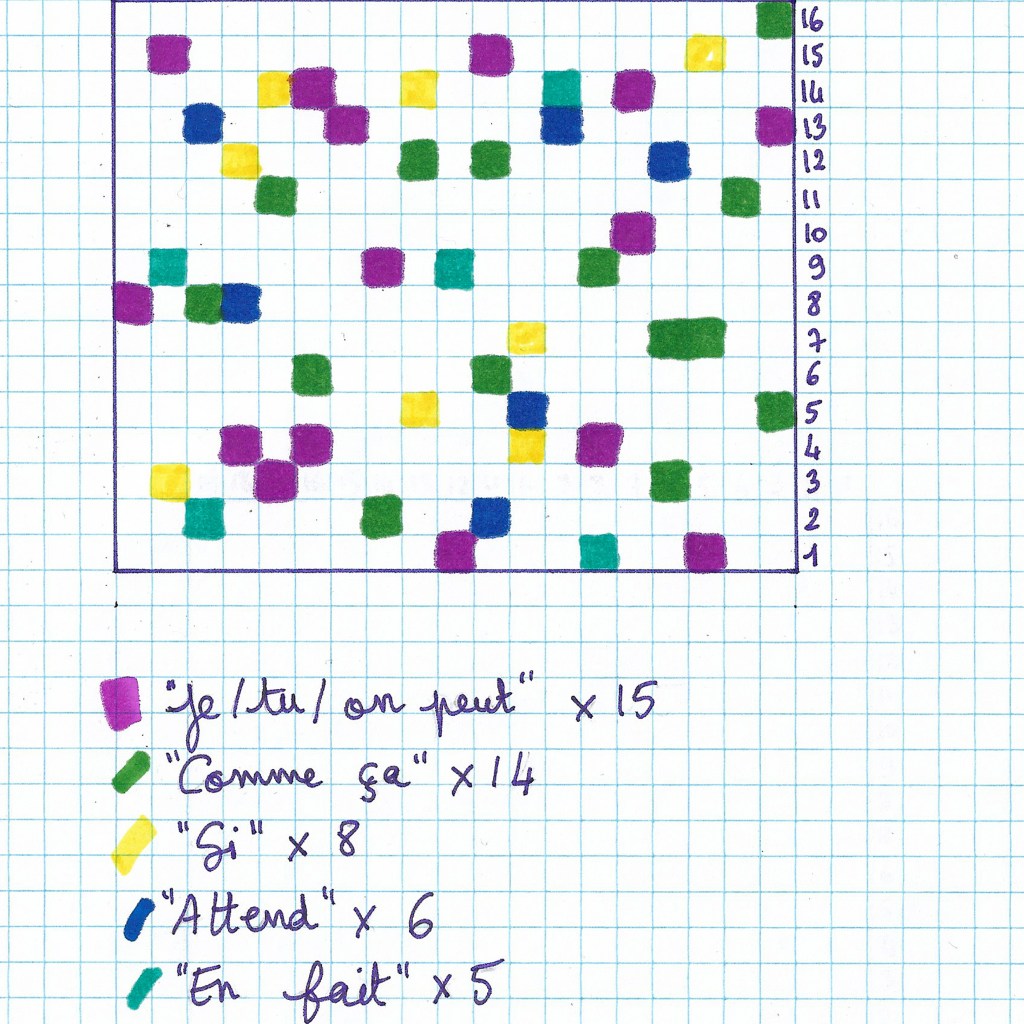 16
15
14
13
12
11
10
9
8
7
6
5
4
3
2
1
"Je/tu/ on peut" x 15
"Comme ça" x 14
"Si" x 8
"Attend" x 6
"En fait" x 5